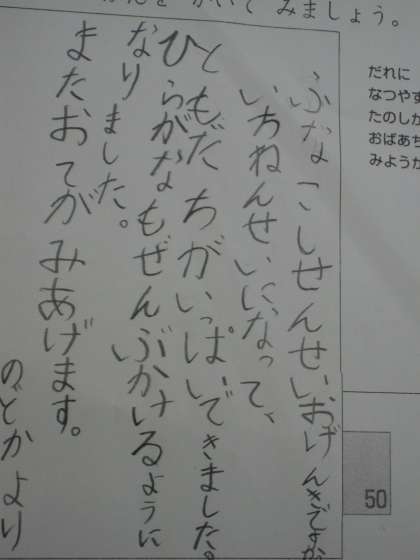 みましょう。
ふなこしせんせいおげんきですか
いちねんせいになって、
ともだちがいっぱいできました。
ひらがなもぜんぶかけるように
なりました。
またおてがみあげます。
のどかより
だれに
なつやす
たのしか
おばあち
みようか
50